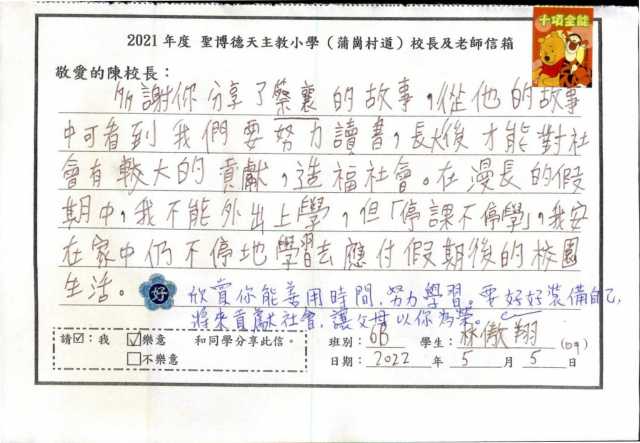 十項全能
2021年度 聖博德天主教小學（蒲崗村道）校長及老師信箱
敬愛的陳校長：
謝你分享了蔡襄的故事，從他的故事
中可看到我們要努力讀書，長大後才能對社
會有較大的貢獻，造福社會。在漫長的假
期中，我不能外出上學，但「停課不停學」，我安
在家中仍不停地學習去應付假期後的校園
生活。
好
欣賞你能善用時間，努力學習。要好好裝備自己，
將來貢獻社會，讓父母以你為榮。
請☑：我 ☑樂意 和同學分享此信。
□不樂意
班別：6B 學生：林傲翔 (09)
日期：2022 年 5 月 5 日